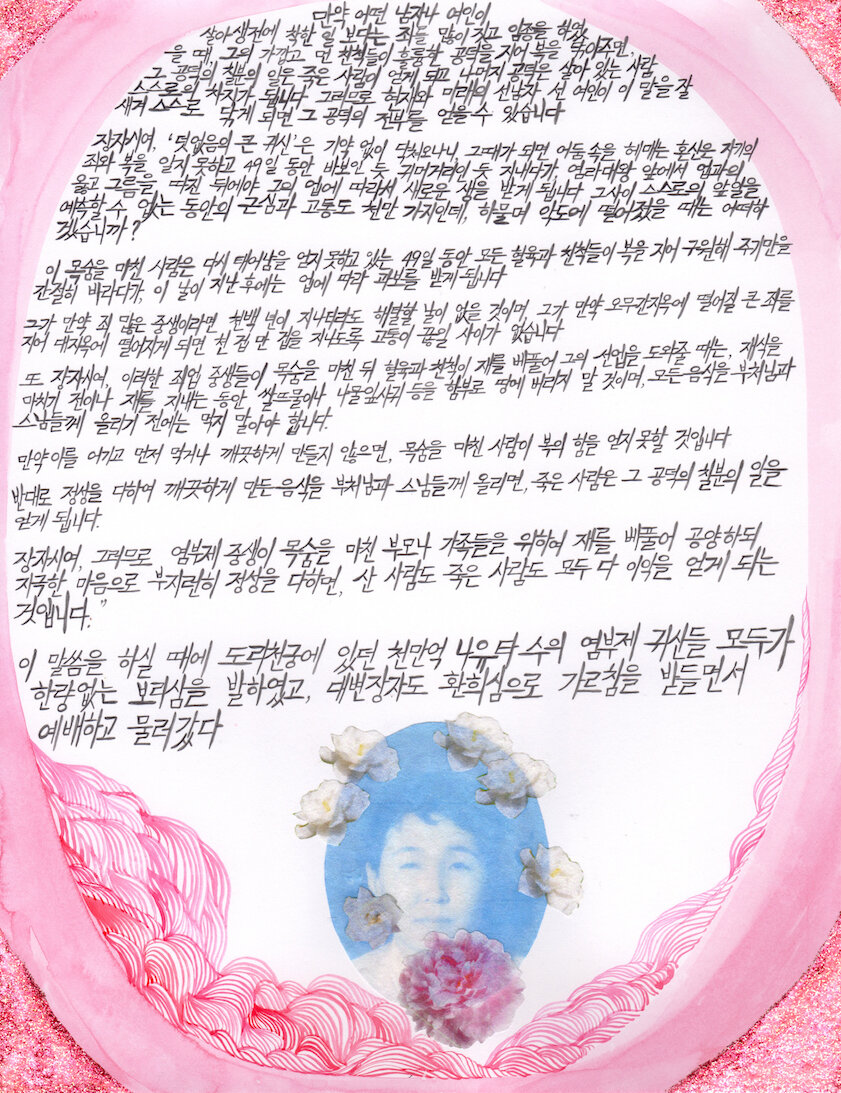 만약 어떤 남자나 여인이
살아생전에 착한 일 보다는 죄를 많이 짓고 임종을 하였
을 때, 그의 가깝고 먼 친척들이 훌륭한 공덕을 지어 복을 닦아주면,
그 공덕의 칠분의 일은 죽은 사람이 얻게 되고 나머지 공덕은 살아 있는 사람
스스로의 차지가 됩니다. 그러므로 현재와 미래의 선남자 선 여인이 이 말을 잘
새겨 스스로 닦게 되면 그 공덕의 전부를 얻을 수 있습니다
장자시여, ‘덧없음의 큰 귀신’은 기약 없이 닥쳐오나니, 그때가 되면 어둠 속을 헤매는 혼신은 자기의
죄와 복을 알지 못하고 49일 동안 바보인 듯 귀머거리인 듯 지내다가, 염라대왕 앞에서 업과의
옳고 그름을 따진 뒤에야 그의 업에 따라서 새로운 생을 받게 됩니다 그사이 스스로의 앞일을
예측할 수 없는 동안의 근심과 고통도 천만 가지인데, 하물며 악도에 떨어졌을 때는 어떠하
겠습니까?
이 목숨을 마친 사람은 다시 태어남을 얻지 못하고 있는 49일 동안 모든 혈육과 친척들이 복을 지어 구원해 주기만을
간절히 바라다가, 이 날이 지난 후에는 업에 따라 과보를 받게 됩니다
그가 만약 죄 많은 중생이라면, 천백 년이 지나더라도 해탈할 날이 없을 것이며, 그가 만약 오무간지옥에 떨어질 큰 죄를
지어 대지옥에 떨어지게 되면 천 겁 만 겁을 지나도록 고통이 끊일 사이가 없습니다
또 장자시여, 이러한 죄업 중생들이 목숨을 마친 뒤 혈육과 친척이 재를 베풀어 그의 선업을 도와줄 때는, 재식을
마치기 전이나 재를 지내는 동안 쌀뜨물이나 나물잎사귀 등을 함부로 땅에 버리지 말 것이며, 모든 음식을 부처님과
스님들께 올리기 전에는 먹지 말아야 합니다.
만약 이를 어기고 먼저 먹거나 깨끗하게 만들지 않으면, 목숨을 마친 사람이 복의 힘을 얻지 못할 것입니다
반대로 정성을 다하여 깨끗하게 만든 음식을 부처님과 스님들께 올리면, 죽은 사람은 그 공덕의 칠분의 일을
얻게 됩니다.
장자시여, 그러므로 염부제 중생이 목숨을 마친 부모나 가족들을 위하여 재를 베풀어 공양하되
지극한 마음으로 부지런히 정성을 다하면, 산 사람도 죽은 사람도 모두 다 이익을 얻게 되는
것입니다.”
이 말씀을 하실 때에 도리천궁에 있던 천만억 나유타 수의 염부제 귀신들 모두가
한량없는 보리심을 발하였고, 대변장자도 환희심으로 가르침을 받들면서
예배하고 물러갔다